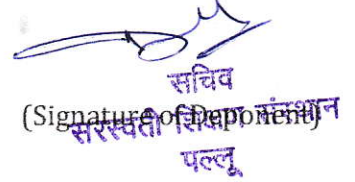 सचिव
(Signature of Deponent)
सरस्वती शिक्षण संस्थान
पल्लू